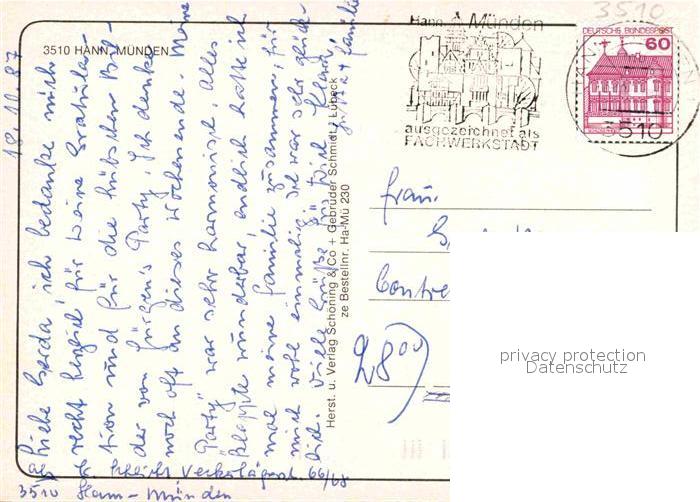 3510
Hann. Münden
ausgezeichnet als
FACHWERKSTADT
DEUTSCHE BUNDESPOST
60
3510
3510 HANN. MÜNDEN
18.10.87
Liebe Gerda, ich bedanke mich
recht herzlich für Deine Gratula-
tion und für die hübschen Bil-
der von Jürgen's Party. Ich denke
noch oft an dieses Wochenende. Meine
Party war sehr harmonisch, alles
klappte wunderbar, endlich hatte ich
mal meine Familie zusammen, für
mich wohl einmalig. Ich war sehr glück-
lich. Viele Grüße für Dich
Familie
Herst. u. Verlag Schöning & Co + Gebrüder Schmidt, Lübeck
ze Bestellnr. Ha-Mü 230
Frau
2800
66/68
3510 Hann-Münden
privacy protection
Datenschutz